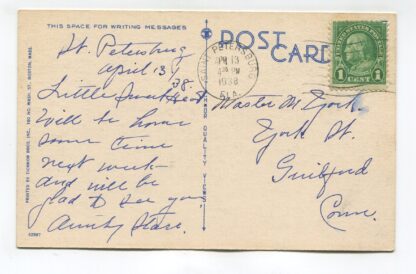 THIS SPACE FOR WRITING MESSAGES
POST
CARD
SAINT PETERSBURG
APR 13
4 PM
1938
FLA.
1 CENT 1
St. Petersburg
April 13,
38.
Little Sweetheart
Will be home
some time
next week
and will be
glad to see you,
Aunty
Master M York
York St.
Guilford
Conn.
PRINTED BY TICHNOR BROS. INC.
BOSTON, MASS.
QUALITY VIEWS